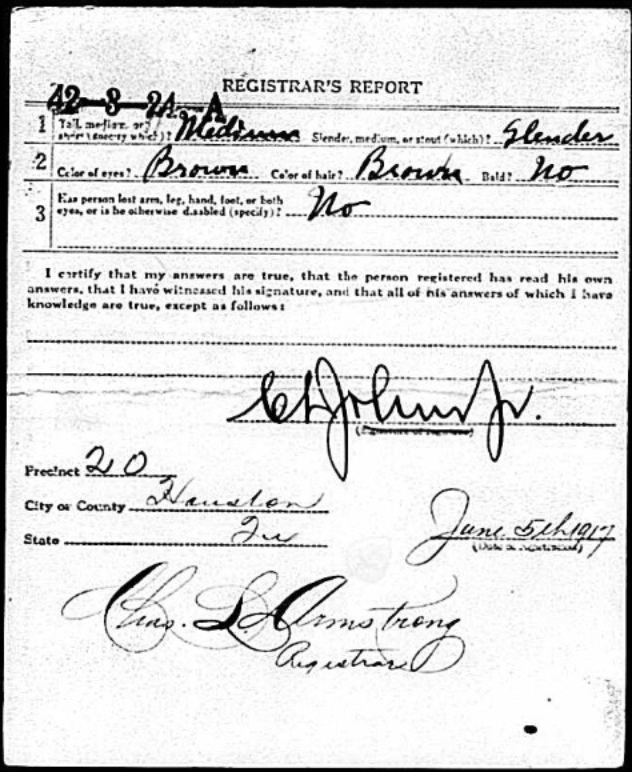 REGISTRAR'S REPORT
42-3-2A. A
1 Tall, medium, or short (specify which)? Medium Slender, medium, or stout (which)? Slender
2 Color of eyes? Brown Color of hair? Brown Bald? No
3 Has person lost arm, leg, hand, foot, or both eyes, or is he otherwise disabled (specify)? No
I certify that my answers are true, that the person registered has read his own
answers, that I have witnessed his signature, and that all of his answers of which I have
knowledge are true, except as follows:
Jr.
Precinct 20
City or County Houston
State Tex
June 5th 1917
Chas. L. Armstrong
Registrar